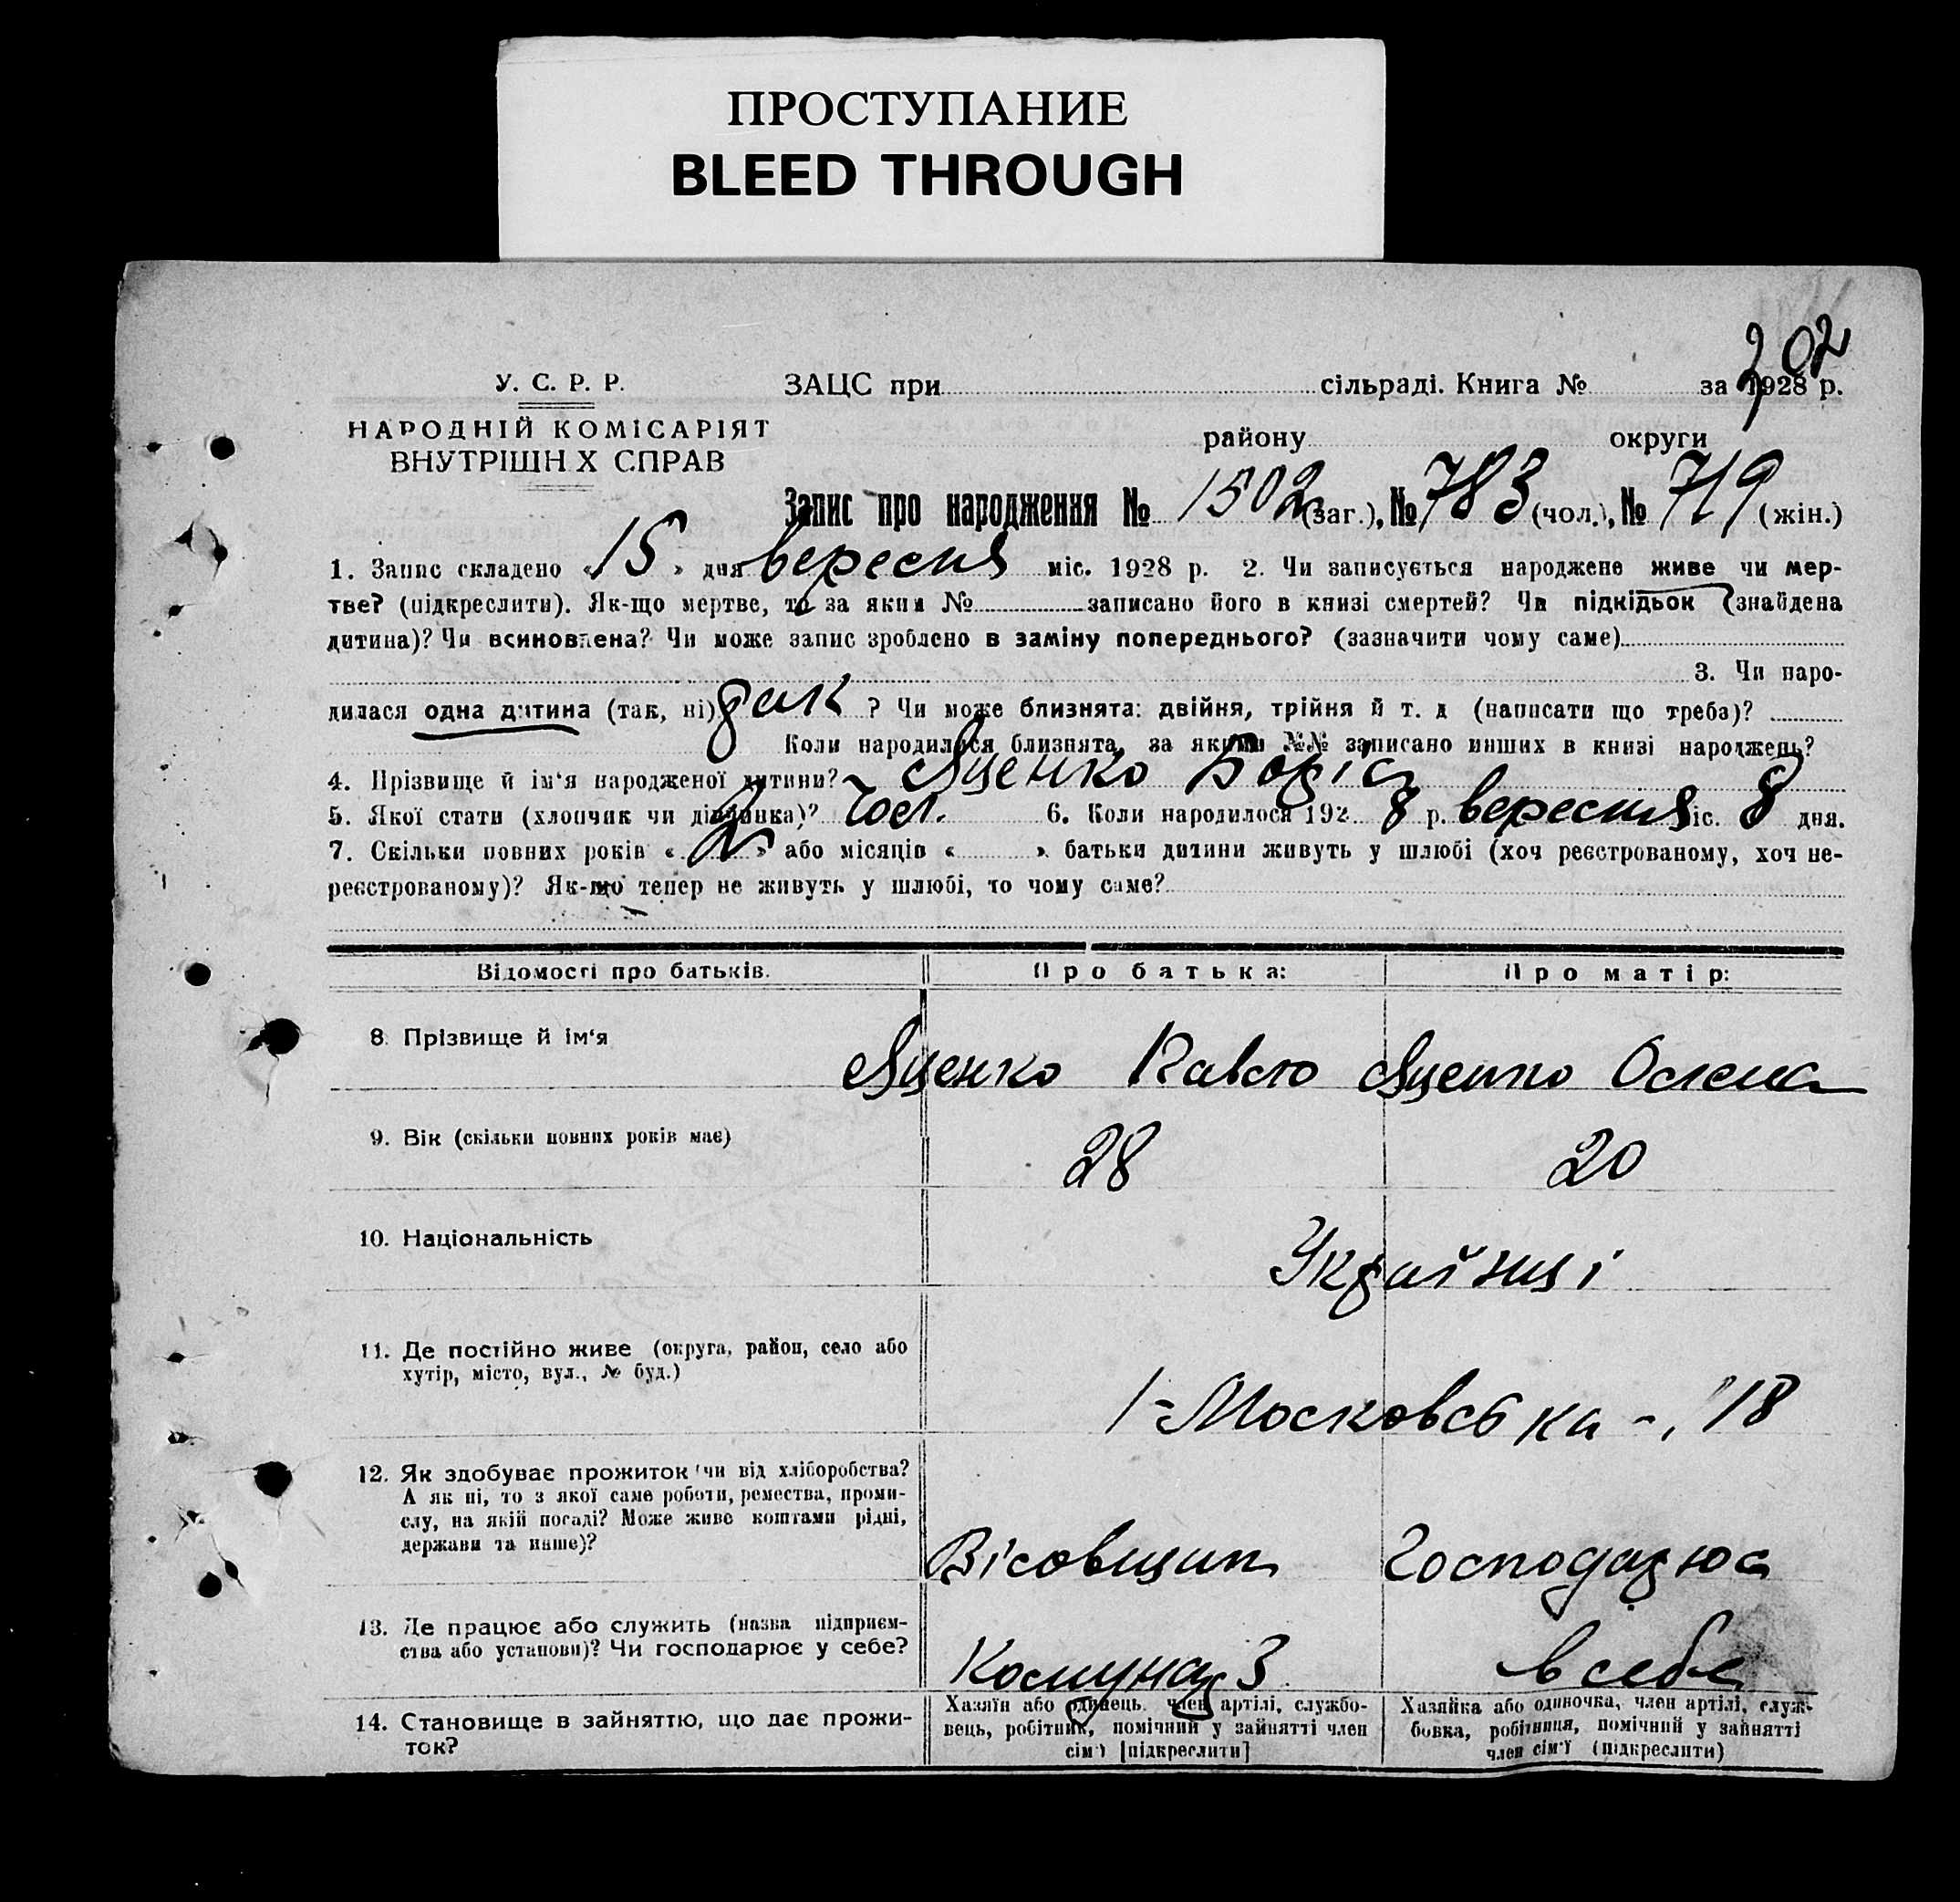 ПРОСТУПАНИЕ
BLEED THROUGH
202
У. С. Р. Р.
ЗАЦС при сільраді. Книга № за 1928 р.
НАРОДНІЙ КОМІСАРІЯТ
ВНУТРІШН Х СПРАВ
району округи
Запис про народження № 1502 (заг.), № 783 (чол.), № 719 (жін.)
1. Запис складено « 15 » дня вересня міс. 1928 р. 2. Чи записується народжене живе чи мер-
тве? (підкреслити). Як-що мертве, то за яким № записано його в книзі смертей? Чи підкідьок (знайдена
дитина)? Чи всиновлена? Чи може запис зроблено в заміну попереднього? (зазначити чому саме)
3. Чи наро-
дилася одна дитина (так, ні) так ? Чи може близнята: двійня, трійня й т. д (написати що треба)?
Коли народилося близнята, за якими №№ записано инших в книзі народжень?
4. Прізвище й ім'я народженої дитини? Яценко Боріс
5. Якої стати (хлопчик чи дівчинка)? Чол. 6. Коли народилося 192 8 р. вересня міс. 8 дня.
7. Скільки повних років « 2 » або місяців « » батьки дитини живуть у шлюбі (хоч реєстрованому, хоч не-
реєстрованому)? Як-що тепер не живуть у шлюбі, то чому саме?
Відомості про батьків. Про батька: Про матір:
8. Прізвище й ім'я Яценко Павло Яценко Олена
9. Вік (скільки повних років має) 28 20
10. Національність Українці
11. Де постійно живе (округа, район, село або
хутір, місто, вул., № буд.)
1-Московська -, 18
12. Як здобуває прожиток чи від хліборобства?
А як ні, то з якої саме роботи, ремества, проми-
слу, на якій посаді? Може живе коштами рідні,
держави та инше)?
Вісовщик Господарює
13. Де працює або служить (назва підприєм-
ства або установи)? Чи господарює у себе?
Комунар З. в себе
14. Становище в зайняттю, що дає прожи-
ток?
Хазяїн або одинець, член артілі, службо-
вець, робітник, помічний у зайнятті член
сім'ї [підкреслити]
Хазяйка або одиночка, член артілі, служ-
бовка, робітниця, помічний у зайнятті
член сім'ї (підкреслити)